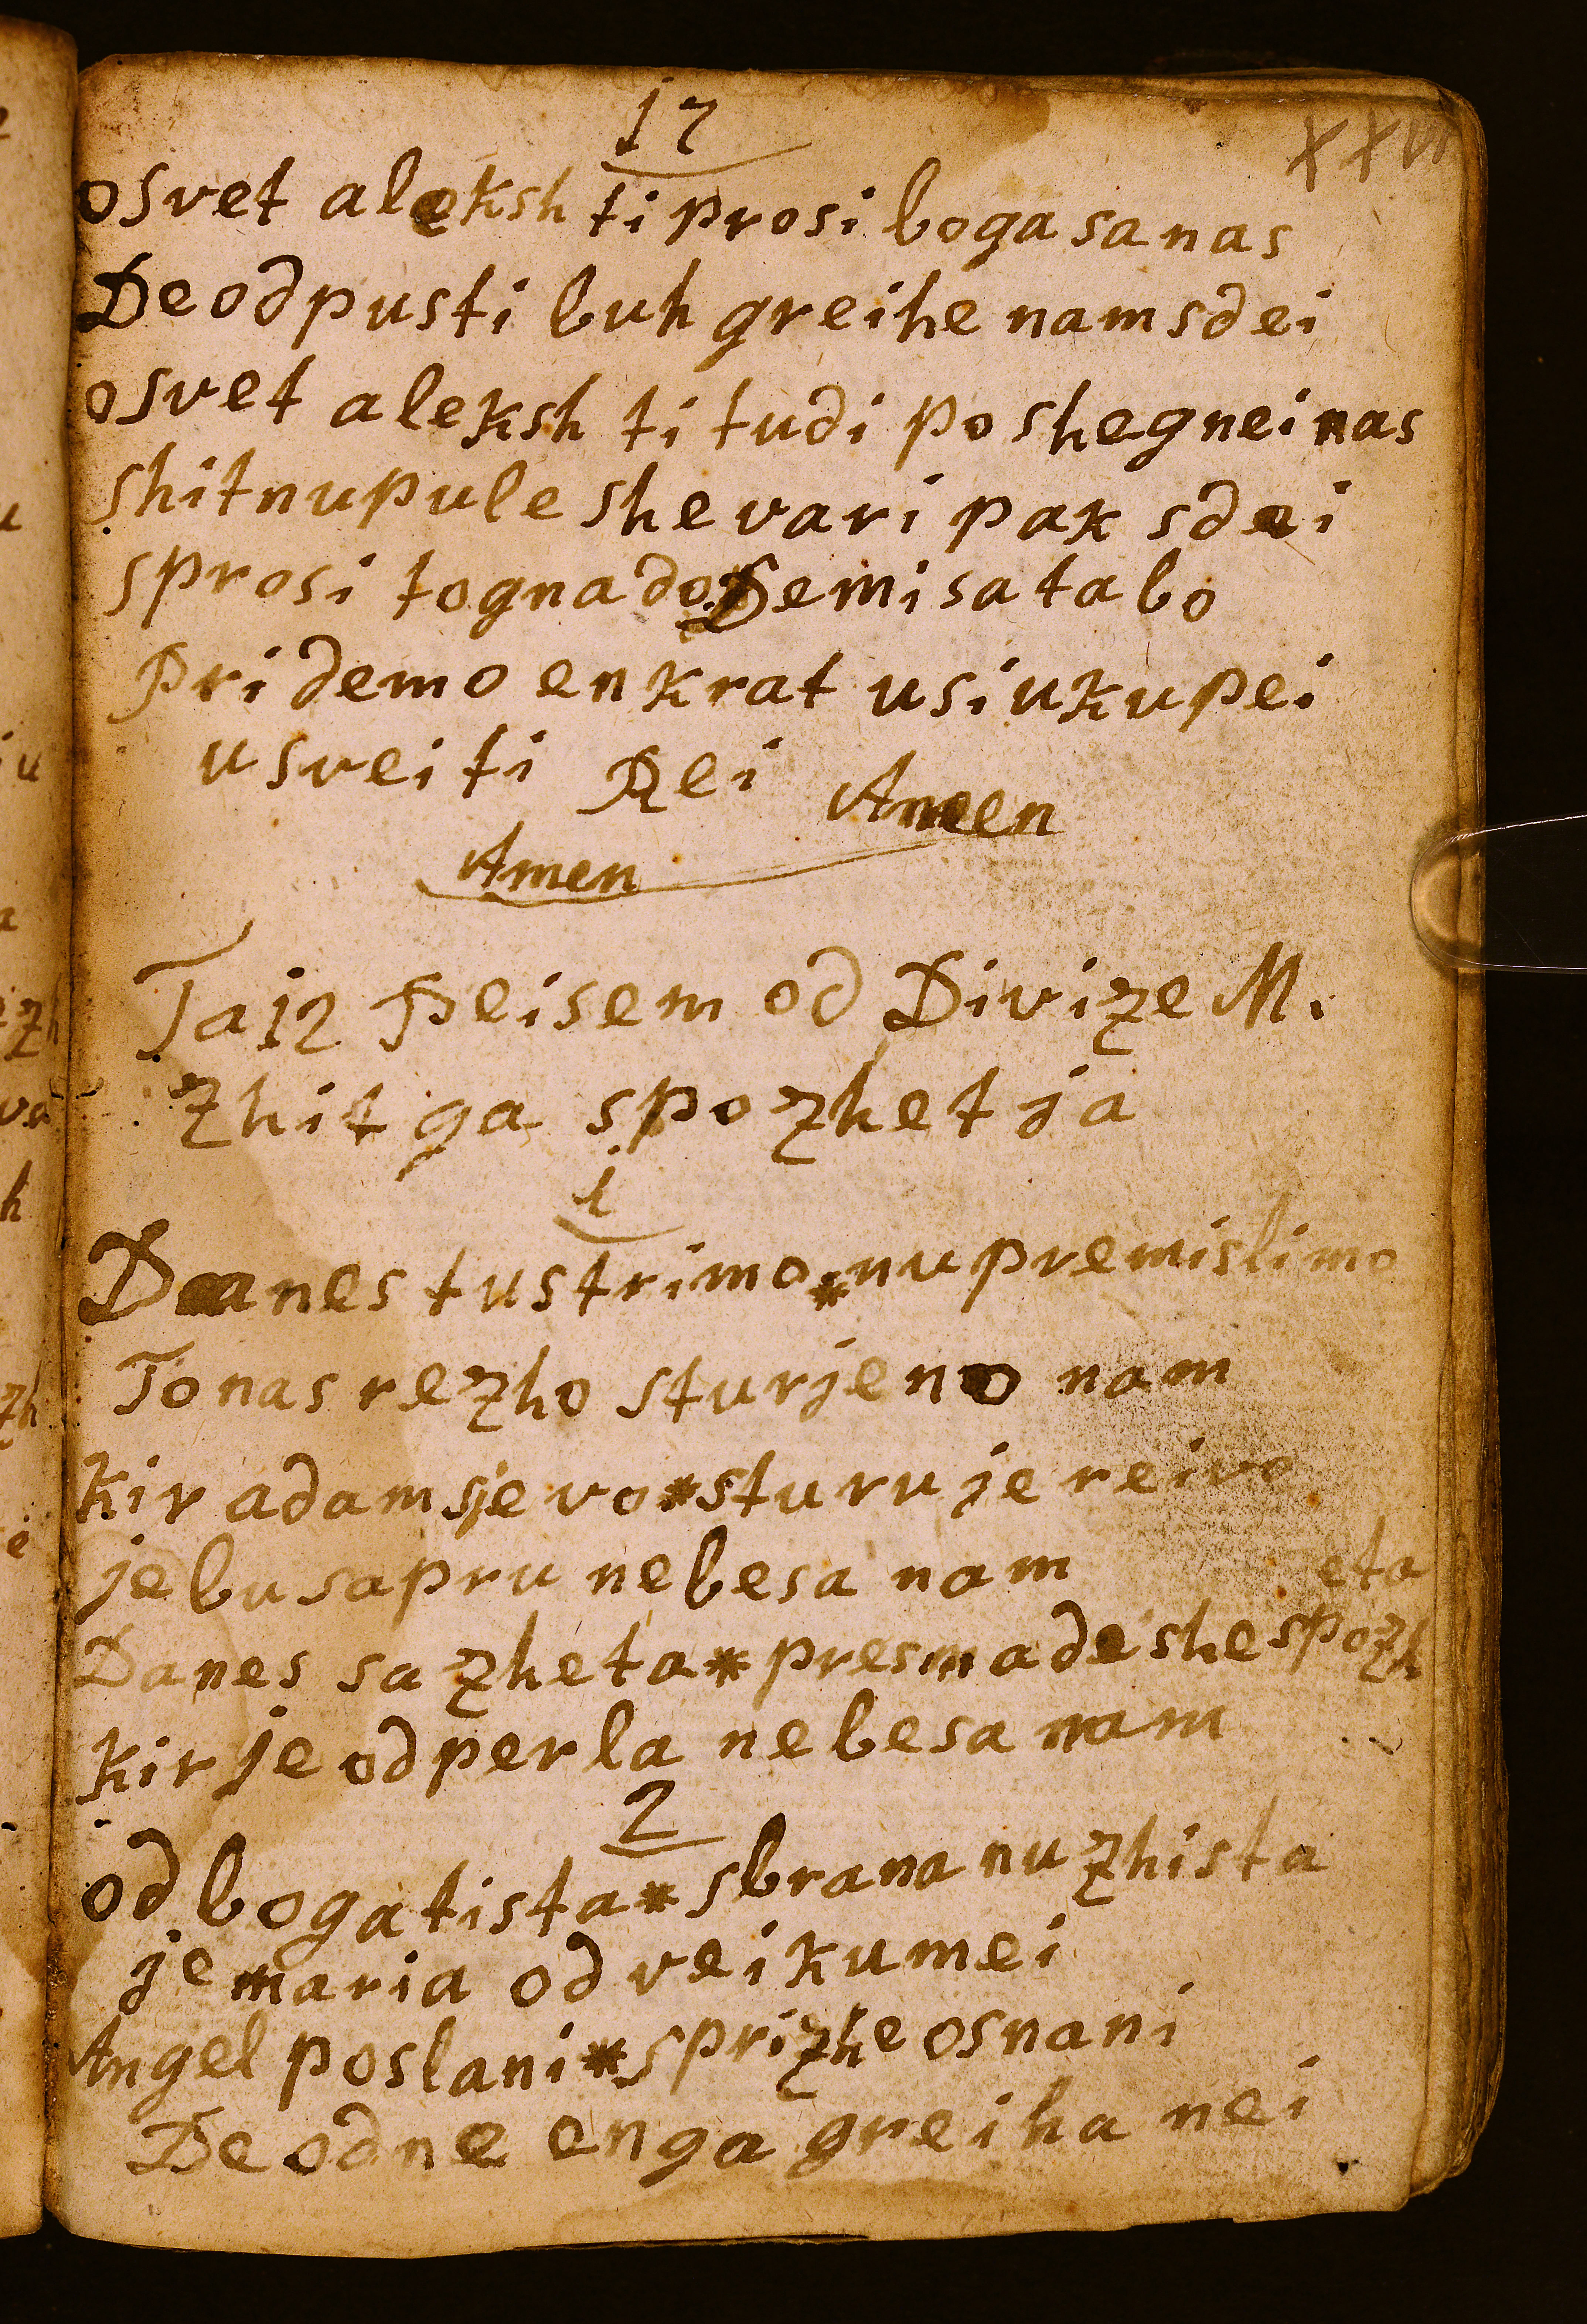 17
osvet aleksh ti prosi boga sa nas
De odpusti buh greihe nam sdei
osvet aleksh ti tudi poshegnei nas
shitnu pule she vari pak sdei
sprosi to gnado De mi sa tabo
pridemo enkrat usi ukupei
u sveiti Rei Amen
Amen
Ta 12 Peisem od Divize M.
zhistga spozhetja
1
Danes tustrimo * nu premislimo
To nas rezho sturjeno nam
kir adam sje vo * sturu je reivo
je bu sapru nebesa nam
eta
Danes sa zheta * presmadeshe spozh
kir je odperla nebesa nam
2
od boga tista * sbrana nu zhista
je maria od veikumei
Angel poslani * sprizhe osnani
De od ne enga greiha nei